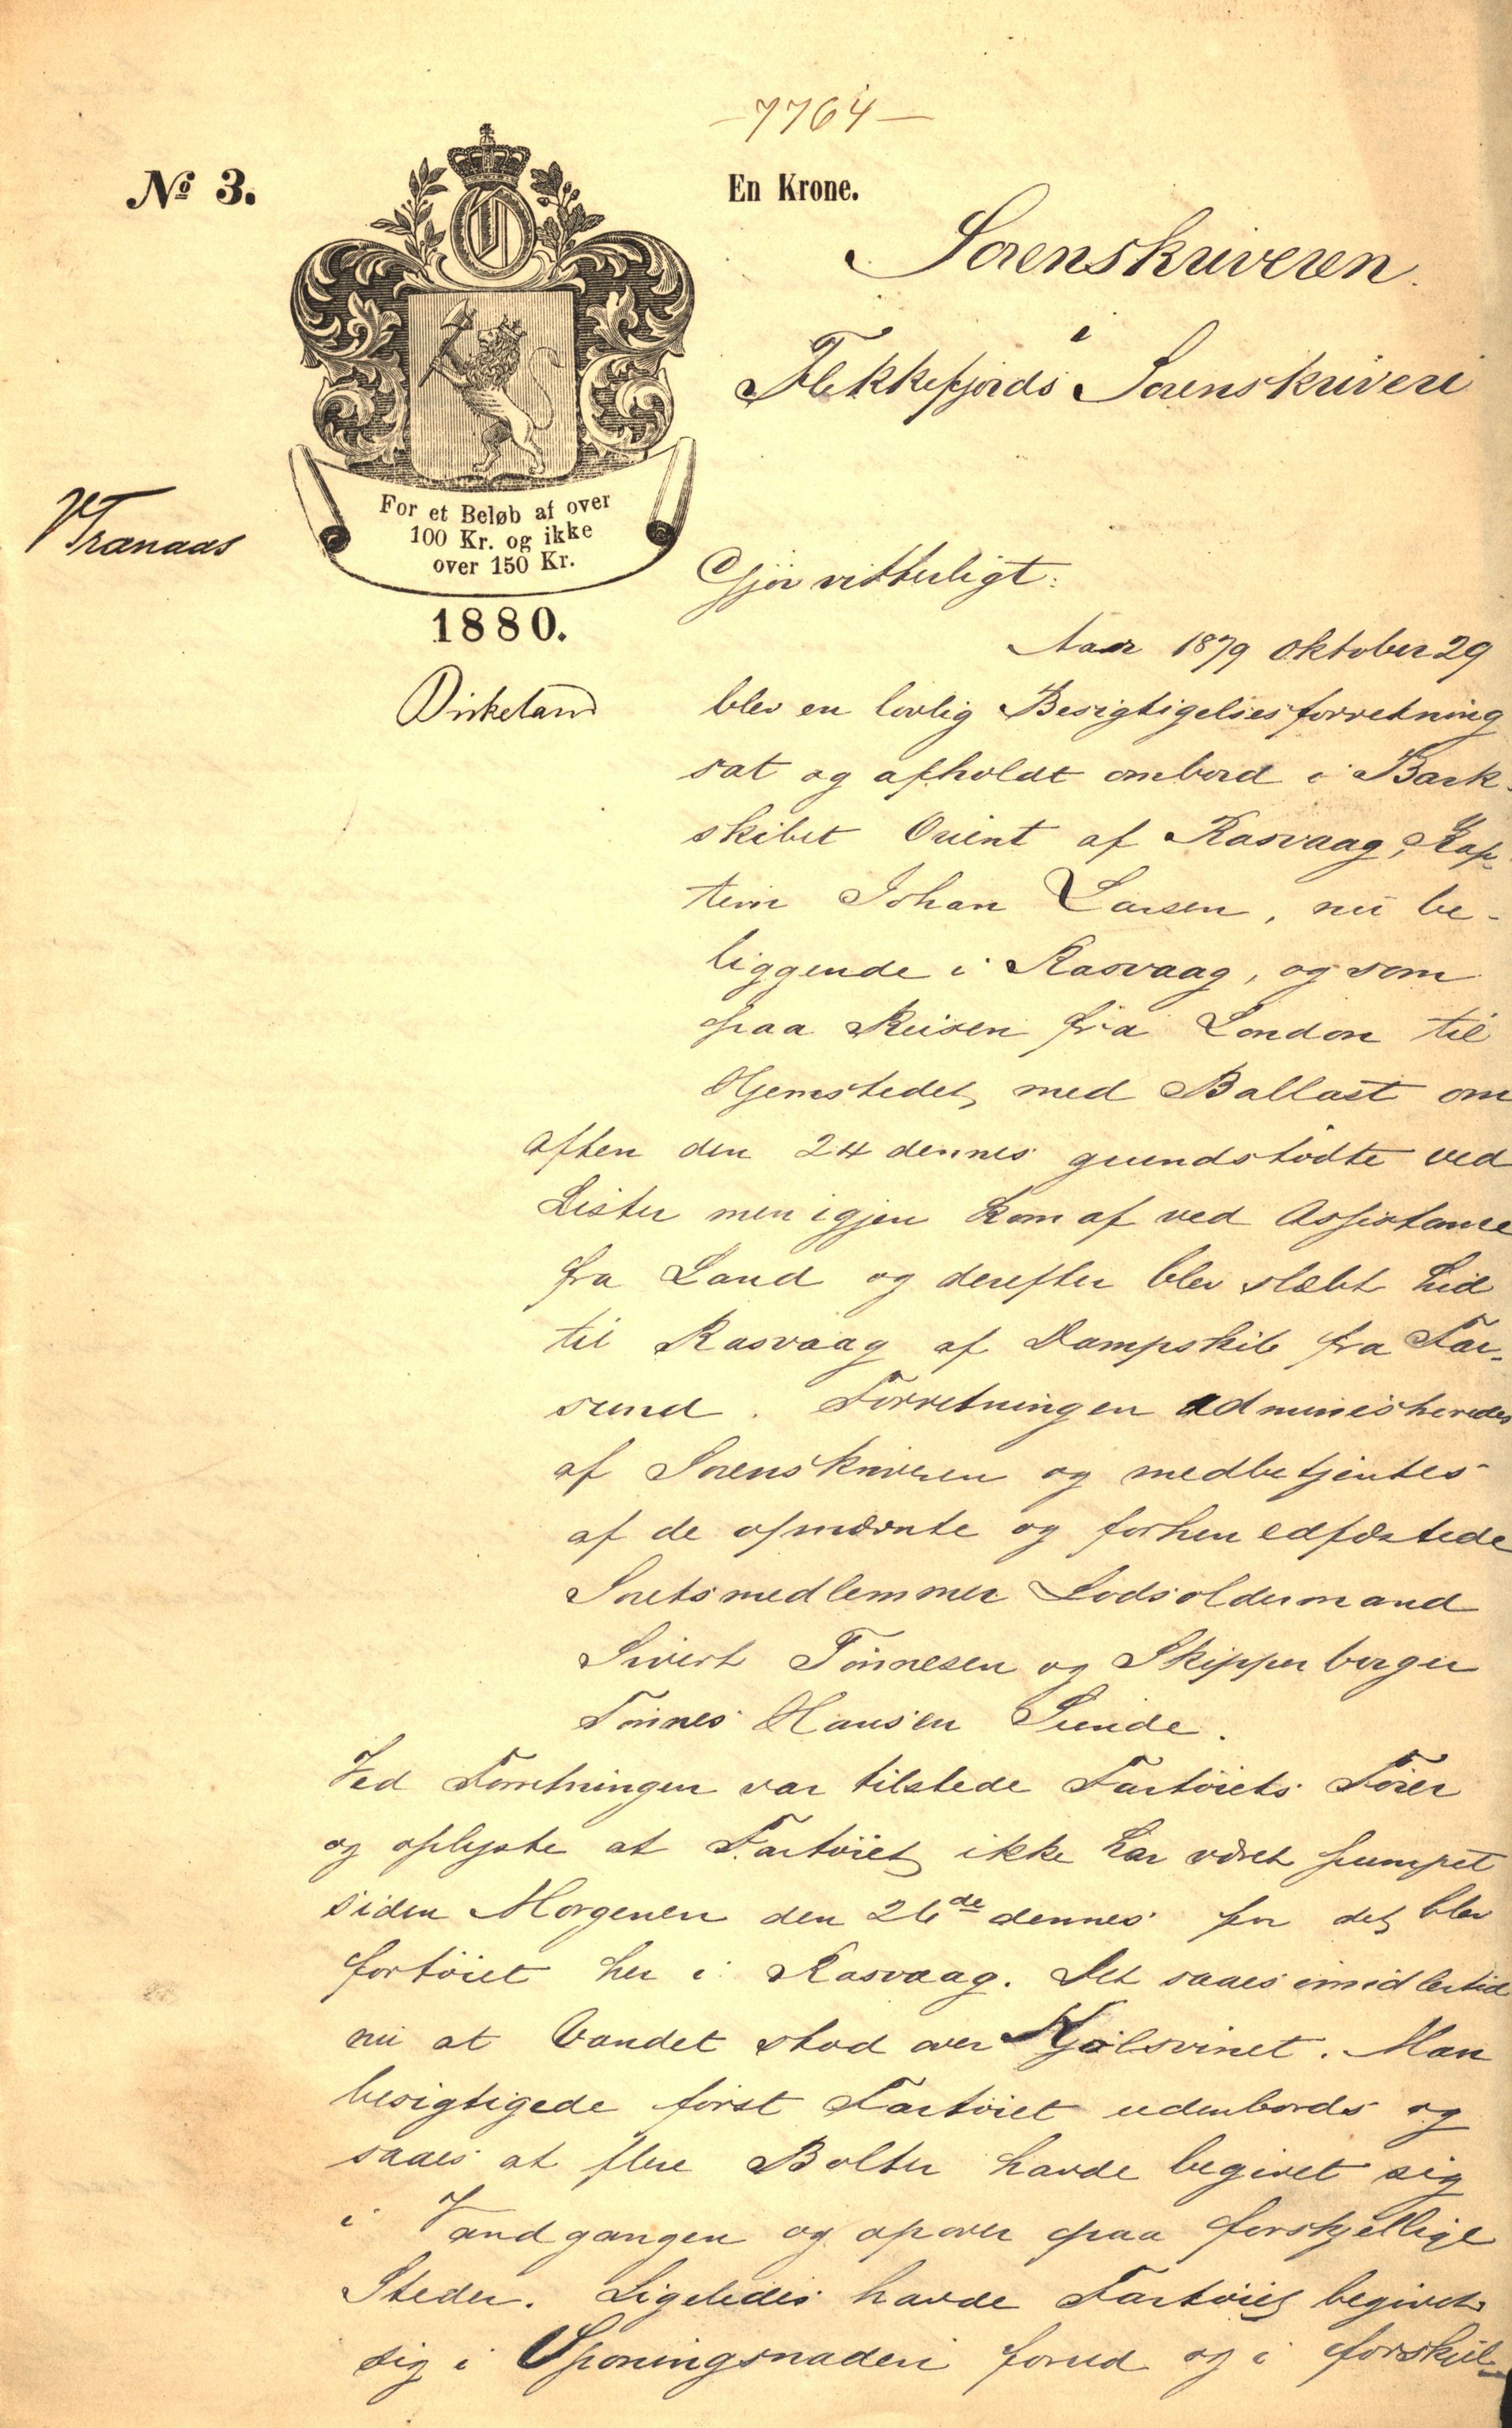 -7764-
No 3.
En Krone.
Sorenskriveren
i
Flekkefjords Sorenskriveri
For et Beløb af over
100 Kr. og ikke
over 150 Kr.
1880.
Tranaas
Birkeland
Gjør vitterligt:
Aar 1879 Oktober 29
blev en lovlig Besigtigelsesforretning
sat og afholdt ombord i Bark-
skibet Orient af Rasvaag, Kap-
tein Johan Larsen, nu be-
liggende i Rasvaag, og som
paa Reisen fra London til
Hjemstedet med Ballast om
Aften den 24 dennes grundstødte ved
Lister men igjen kom af ved Assistance
fra Land og derefter blev slæbt hid
til Rasvaag af Dampskib fra Far-
sund. Forretningen administreredes
af Sorenskriveren og medbetjentes
af de opnævnte og forhen edfæstede
Søretsmedlemmer Lodsoldermand
Sivert Tønnesen og Skipperborger
Tønnes Hansen Sunde.
Ved Forretningen var tilstede Fartøiets Fører
og oplyste at Fartøiet ikke har været pumpet
siden Morgenen den 26de dennes før det blev
fortøiet her i Rasvaag. Det saaes imidlertid
nu at Vandet stod over Kjølsvinet. Man
besigtigede først Fartøiet udenbords og
saaes at flere Bolter havde begivet sig
i Vandgangen og opover paa forskjellige
Steder. Ligeledes havde Fartøiet begivet
sig i Sponingsnaden forud og i forskjel-